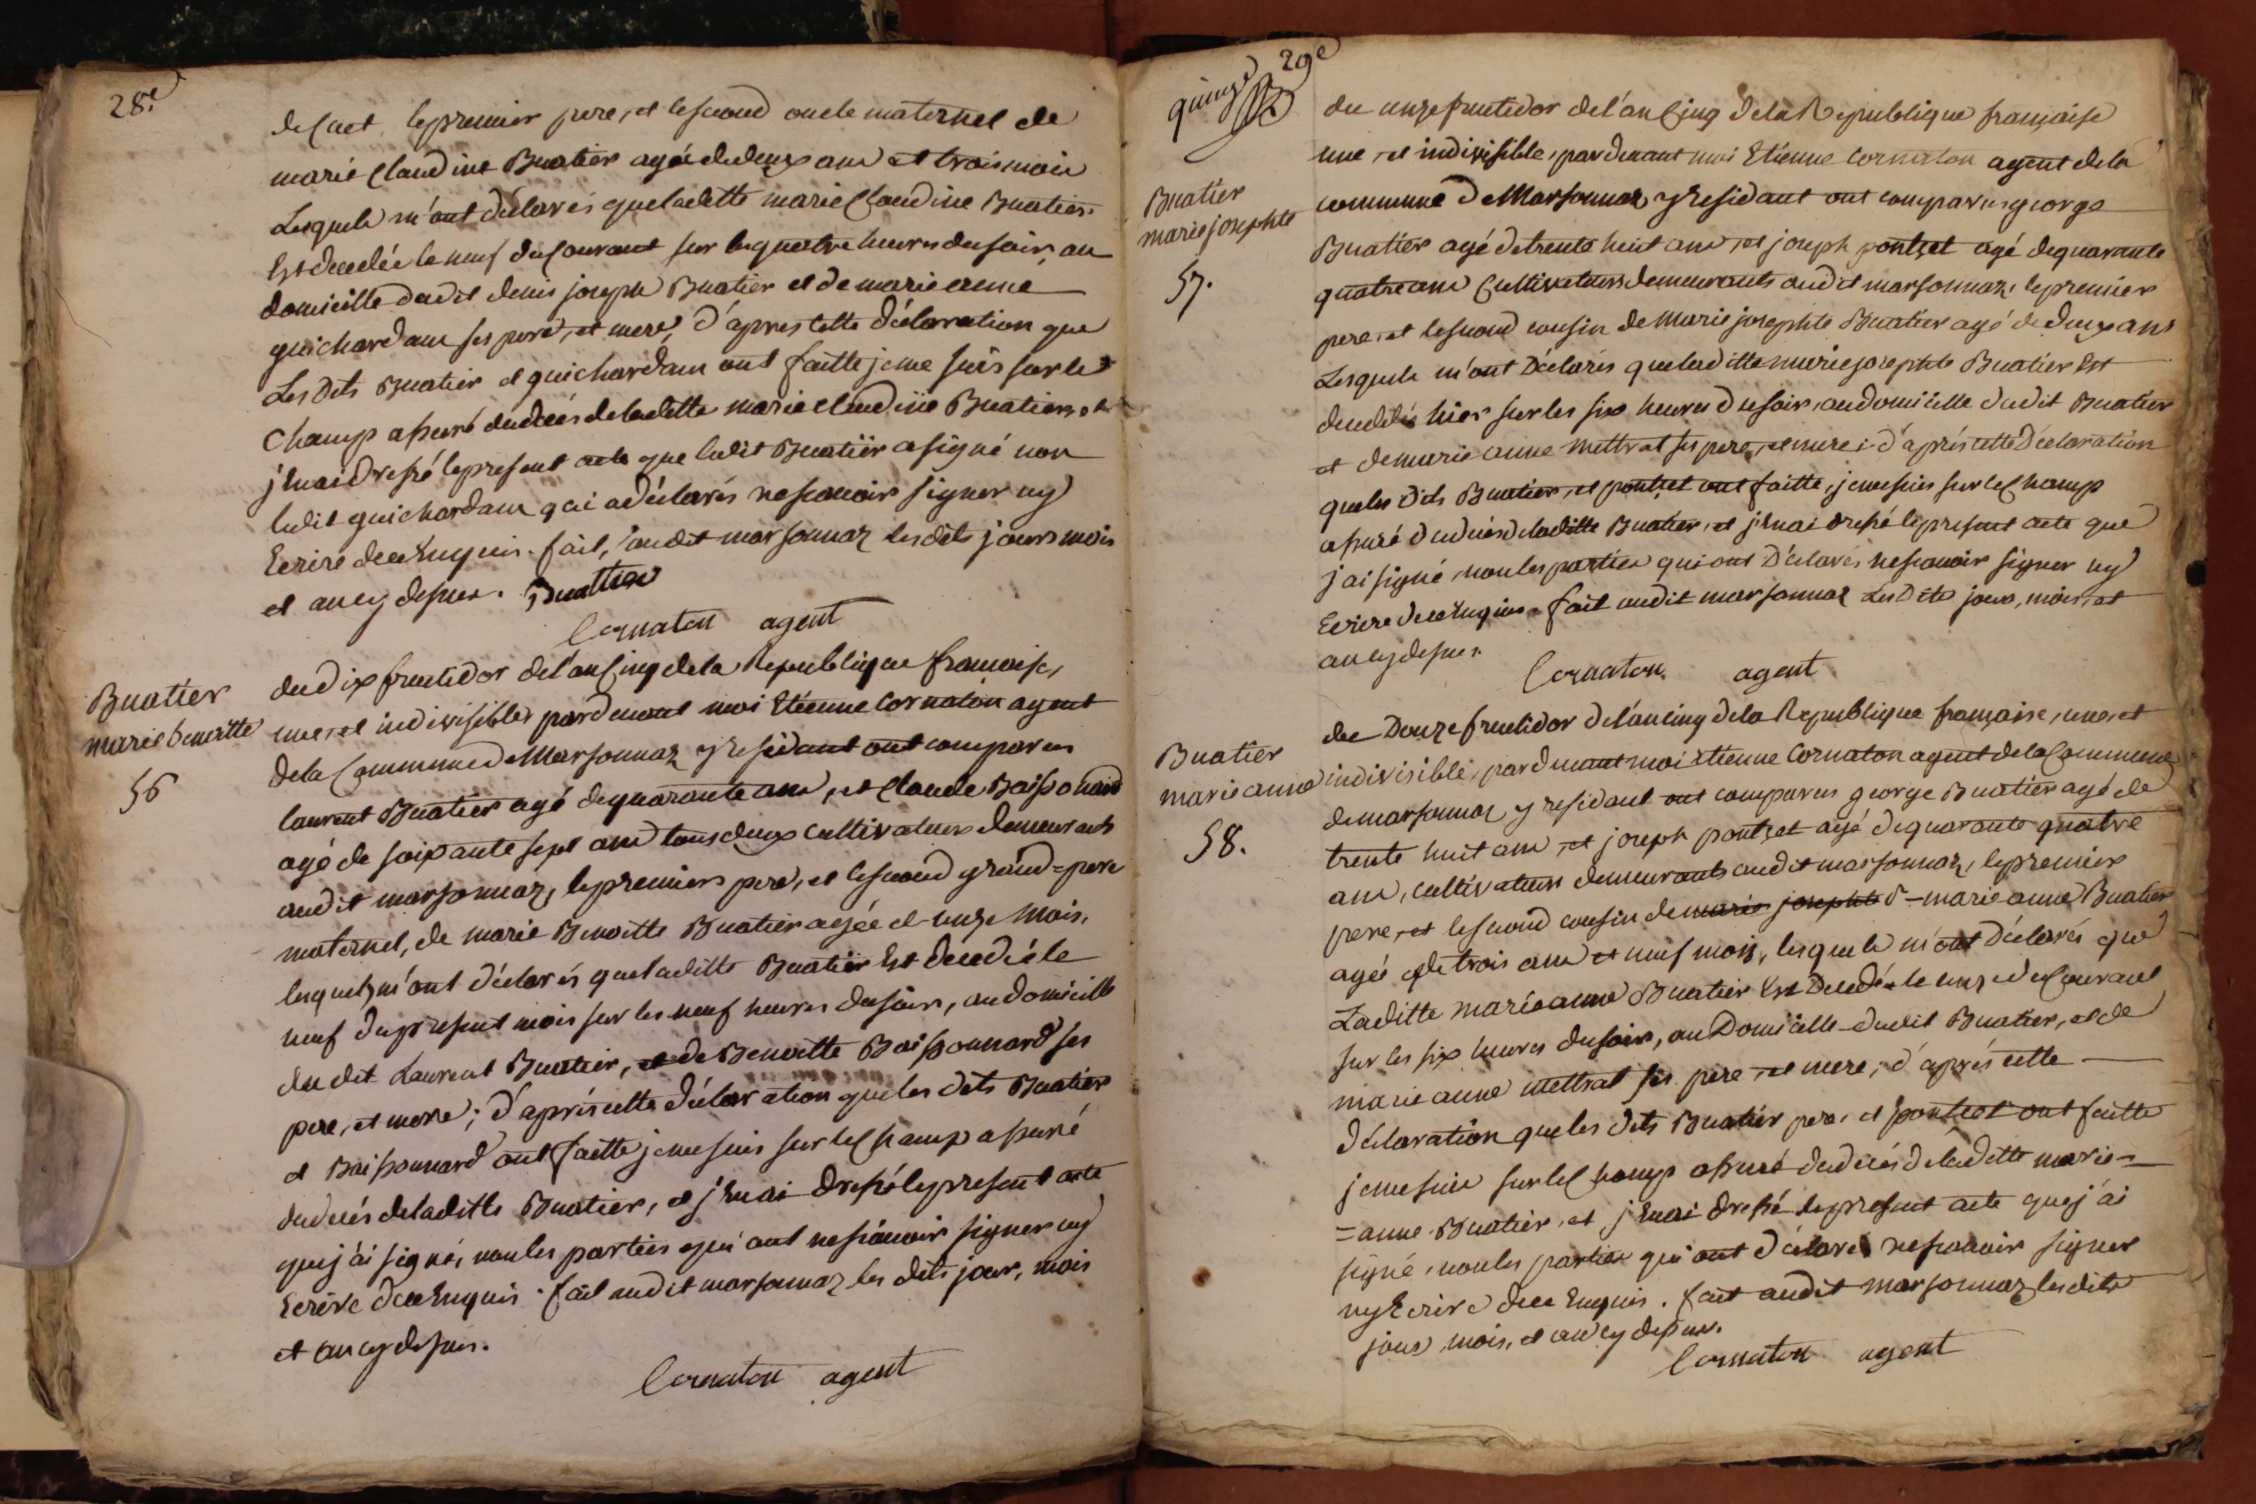 28.e
de Cuet, le premier pere, et le second oncle maternel de
marie Claudine Buatier agée de deux ans et trois mois
Lesquels m'ont déclarés que ladette marie Claudine Buatier
Est decedée le neuf du Courant sur les quatre heures du soir, au
domicille dudit denis joseph Buatier et de marie anne
guichardam ses pere, et mere, d'apres cette déclaration que
Les Dits Buatier et guichardam ont faitte je me suis sur le
Champ assuré dudecés de ladette marie claudine Buatier, et
j'Enai dressé le present acte que ledit Buatiér a signé non
ledit guichardam qui a déclarés ne scavoir signer ny
Ecrire de ce Enquis. fait, audit marsonnaz les dits jours mois
et an cy dessus. Buattier
Cornaton agent
Buatier
marie benoitte
56
du dix fructidor de l'an Cinq de la Republique francoise,
une, et indivisible, pardevant moi Etienne Cornaton agent
de la Commune de Marsonnaz y residant ont comparus
laurent Buatier agé de quarante ans, et Claude Boissonard
agé de soixante sept ans tous deux cultivateurs demeurants
audit marsonnaz, le premiers pere, et le second grand=pere
maternel, de marie Benoitte Buatier agée d-unze mois,
lesquels m'ont déclarés que laditte Buatier Est decedée le
neuf du present mois sur les neuf heures du soir, au domicille
du dit Laurent Buatier, et de Benoitte Boissonnard ses
pere, et mere; d'aprés cette déclaration que les dits Buatier
et Boissonnard ont faitte je me suis sur le Champ assuré
dudecés de laditte Buatier, et j'Enai dressé le present acte
que j'ai signé, non les parties qui ont ne scavoir signer ny
Ecrire de ce Enquis. fait audit marsonnaz les dits jour, mois
et an cy dessus.
Cornaton agent
29e
quinze
Buatier
marie josephte
57.
du unze fructidor de l'an Cinq de la Republique françaisse
une, et indivisible, pardevant moi Etienne Cornaton agent de la
commune de Marsonnaz y residant ont comparus george
Buatier agé de trente huit ans, et joseph pontet agé de quarante
quatre ans Cultivateurs demeurants audit marsonnaz, le premier
pere, et le second cousin de Marie josephte Buatier agé de deux ans
Lesquels m'ont Déclarés que laditte marie josephte Buatier Est
decedée hier sur les six heures du soir, au domicille dudit Buatier
et de marie anne mettrat ses pere, et mere: d'aprés cette Declaration
que les dits Buatier, et pontet ont faitte, je me suis sur le Champ
assuré dudecés de laditte Buatier, et j'Enai dressé le present acte que
j'ai signé, non les parties qui ont Déclarés ne scavoir signer ny
Ecrire de ce Enquis. fait audit marsonnaz Les Dits jour, mois, et
an cy dessus.
Cornaton agent
Buatier
marie anne
58.
du Douze fructidor de l'an cinq de la Republique française, une, et
indivisible, pardevant moi etienne Cornaton agent de la Commune
de marsonnaz y residant ont comparus george Buatier agé de
trente huit ans, et joseph pontet agé de quarante quatre
ans, cultivateurs demeurants audit marsonnaz, le premier
pere, et le second cousin de marie josephte d-marie anne Buatier
agée de trois ans et neuf mois, lesquels m'ont Déclarés que
Laditte marie anne Buatier Est Decedée le unze du Courant
sur les six heures du soir, au Domicille dudit Buatier, et de
marie anne mettrat ses pere, et mere, d'aprés cette
déclaration que les dits Buatier pere, et pontet ont faitte
je me suis sur le Champ assuré dudecés de ladette marie=
=anne Buatier, et j'Enai dressé le present acte que j'ai
signé, non les parties qui ont déclarés ne scavoir signer
ny Ecrire de ce Enquis. fait audit marsonnaz les dits
jour mois, et an cy dessus.
Cornaton agent